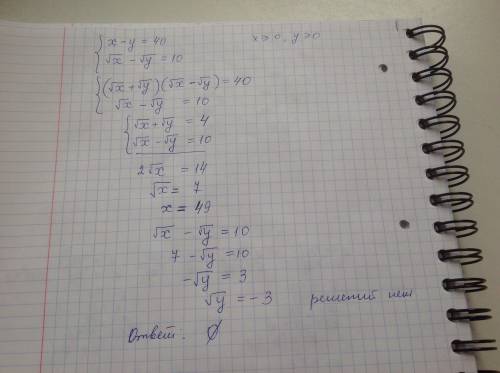 { x - y = 40    x ≥ 0, y ≥ 0
{ √x - √y = 10
{ (√x + √y)(√x - √y) = 40
{ √x - √y = 10
{ √x + √y = 4
{ √x - √y = 10
2√x = 14
√x = 7
x = 49
√x - √y = 10
7 - √y = 10
-√y = 3
√y = -3    решений нет
Ответ. ∅